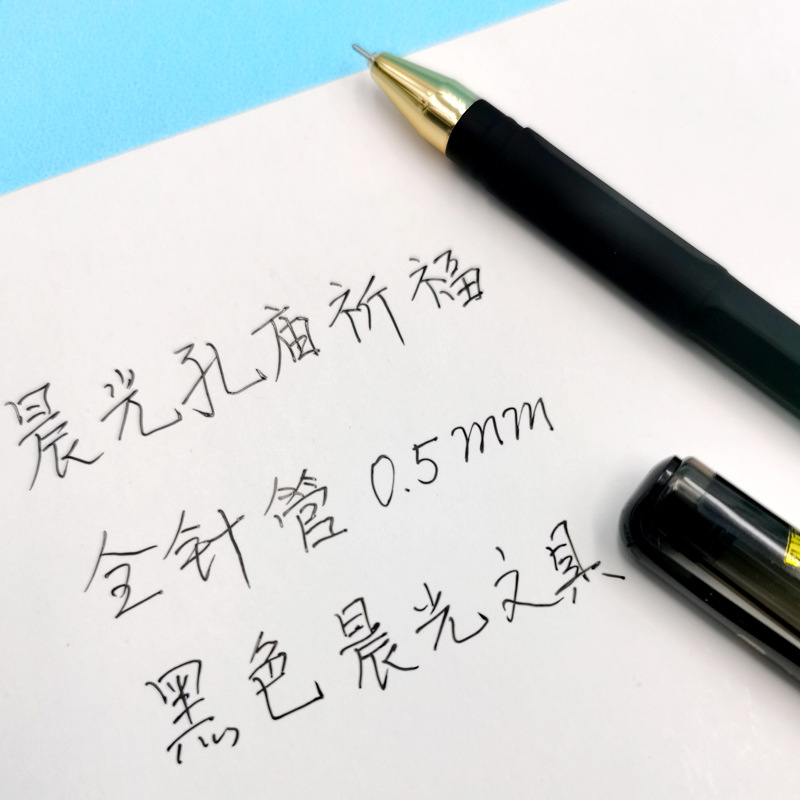 晨光孔庙祈福
全针管 0.5mm
黑色晨光文具